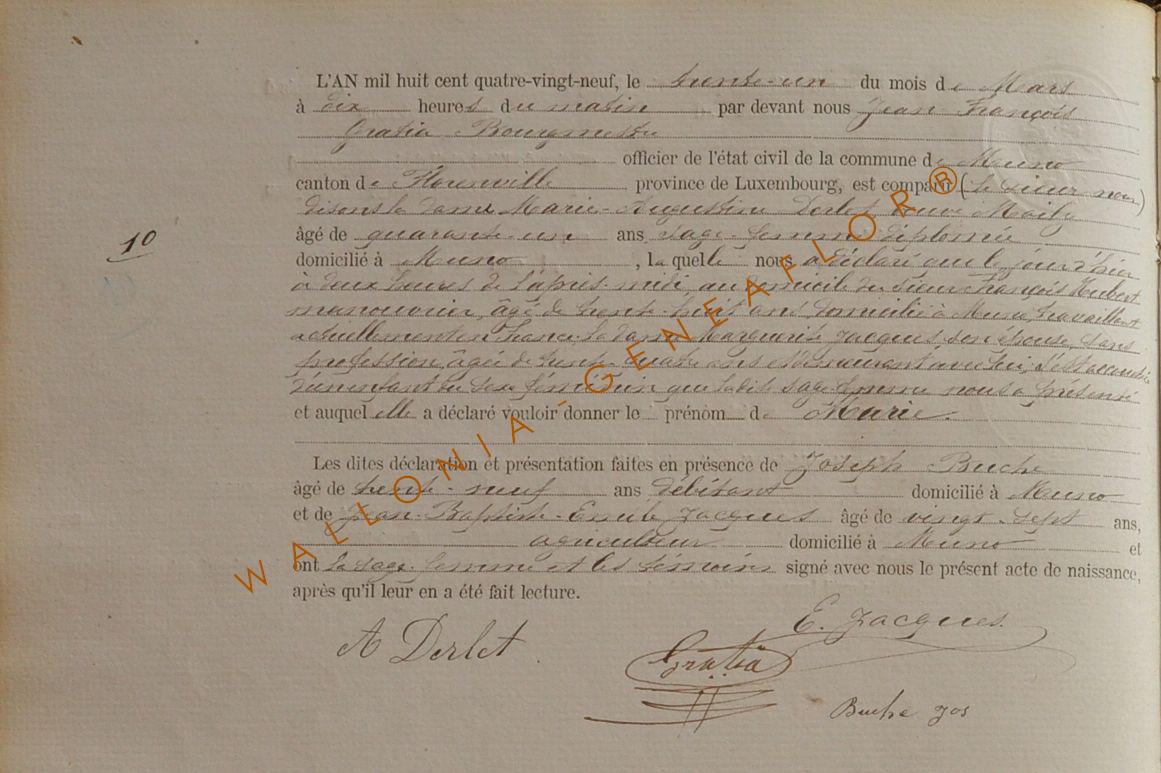 L'AN mil huit cent quatre-vingt-neuf, le trente-un du mois de Mars
à dix heures du matin par devant nous Jean François
Gratia Bourgmestre
officier de l'état civil de la commune de Muno
canton de Florenville province de Luxembourg, est comparu (le sieur nous)
disons la dame Marie-Augustine Derlet Maily
âgé de quarante-un ans, sage-femme diplomée
domicilié à Muno, laquelle nous a déclaré que le jour d'hier
à deux heures de l'après-midi, au domicile du sieur François Hubert
manouvrier, âgé de trente-huit ans, domicilié à Muno, travaillant
actuellement en France, la dame Marguerite Jacques son épouse, sans
profession, âgée de trente-quatre ans et demeurant avec lui, s'est accouchée
d'un enfant du sexe féminin que ladite sage-femme nous a présenté
et auquel elle a déclaré vouloir donner le prénom de Marie.
10
Les dites déclaration et présentation faites en présence de Joseph Buche
âgé de trente-neuf ans débitant domicilié à Muno
et de Jean-Baptiste-Emile Jacques âgé de vingt-sept ans,
agriculteur domicilié à Muno et
ont la sage-femme et les témoins signé avec nous le présent acte de naissance,
après qu'il leur en a été fait lecture.
E. Jacques
A Derlet
Gratia
Buche Jos
WALLONIA - GENEAFLOR ®